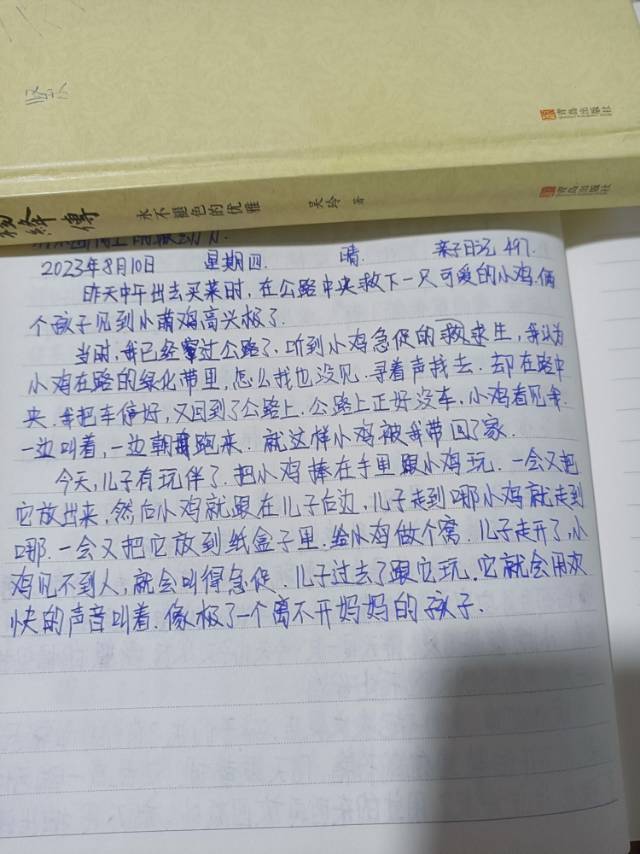 坚水
青岛出版社
杨绛传 永不褪色的优雅 吴玲 著 青岛出版社
2023年8月10日 星期四 晴 亲子日记 497.
昨天中午出去买菜时,在公路中央救下一只可爱的小鸡.俩
个孩子见到小萌鸡高兴极了.
当时,我已经穿过公路了,听到小鸡急促的救求生,我认为
小鸡在路的绿化带里,怎么我也没见.寻着声找去.却在路中
央.我把车停好,又回到了公路上.公路上正好没车,小鸡看见我.
一边叫着,一边朝我跑来.就这样小鸡被我带回了家.
今天,儿子有玩伴了.把小鸡捧在手里跟小鸡玩.一会又把
它放出来,然后小鸡就跟在儿子后边,儿子走到哪小鸡就走到
哪.一会又把它放到纸盒子里.给小鸡做个窝.儿子走开了,小
鸡见不到人,就会叫得急促.儿子过去了跟它玩.它就会用欢
快的声音叫着.像极了一个离不开妈妈的孩子.